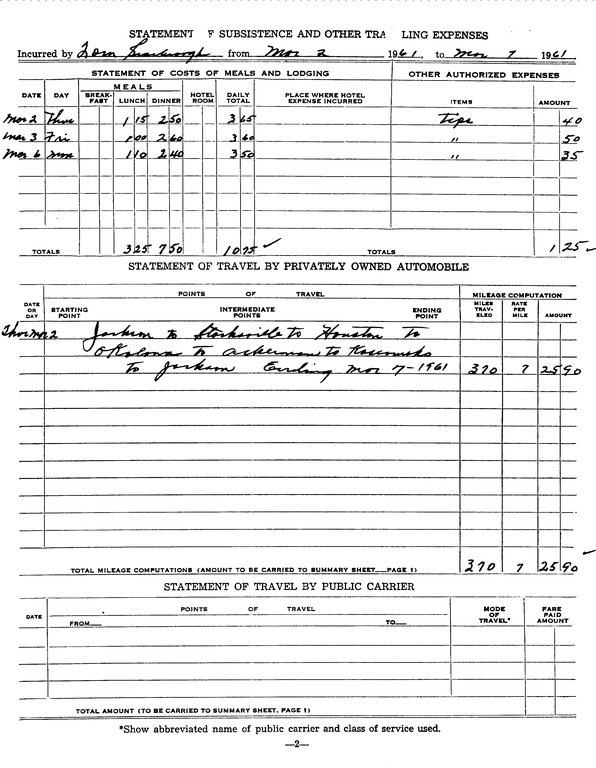 STATEMENT F SUBSISTENCE AND OTHER TRA LING EXPENSES
Incurred by Tom Scarbrough from Mar 2 1961, to Mar 7 1961
STATEMENT OF COSTS OF MEALS AND LODGING OTHER AUTHORIZED EXPENSES
DATE DAY MEALS BREAK-FAST LUNCH DINNER HOTEL ROOM DAILY TOTAL PLACE WHERE HOTEL EXPENSE INCURRED ITEMS AMOUNT
Mar 2 Thur 1 15 2 50 3 65 tips 40
Mar 3 Fri 1 00 2 60 3 60 " 50
Mar 6 Mon 1 10 2 40 3 50 " 35
TOTALS 3 25 7 50 10 75 ✓ TOTALS 1 25 ✓
STATEMENT OF TRAVEL BY PRIVATELY OWNED AUTOMOBILE
DATE OR DAY POINTS OF TRAVEL MILEAGE COMPUTATION
STARTING POINT INTERMEDIATE POINTS ENDING POINT MILES TRAV-ELED RATE PER MILE AMOUNT
Thur Mar 2 Jackson to to Houston to
Okolona to Ackerman to Kosciusko
to Jackson Ending Mar 7-1961 370 7 25 90
TOTAL MILEAGE COMPUTATIONS (AMOUNT TO BE CARRIED TO SUMMARY SHEET—PAGE 1) 370 7 25 90 ✓
STATEMENT OF TRAVEL BY PUBLIC CARRIER
DATE POINTS OF TRAVEL MODE OF TRAVEL* FARE PAID AMOUNT
FROM— TO—
TOTAL AMOUNT (TO BE CARRIED TO SUMMARY SHEET, PAGE 1)
*Show abbreviated name of public carrier and class of service used.
—2—